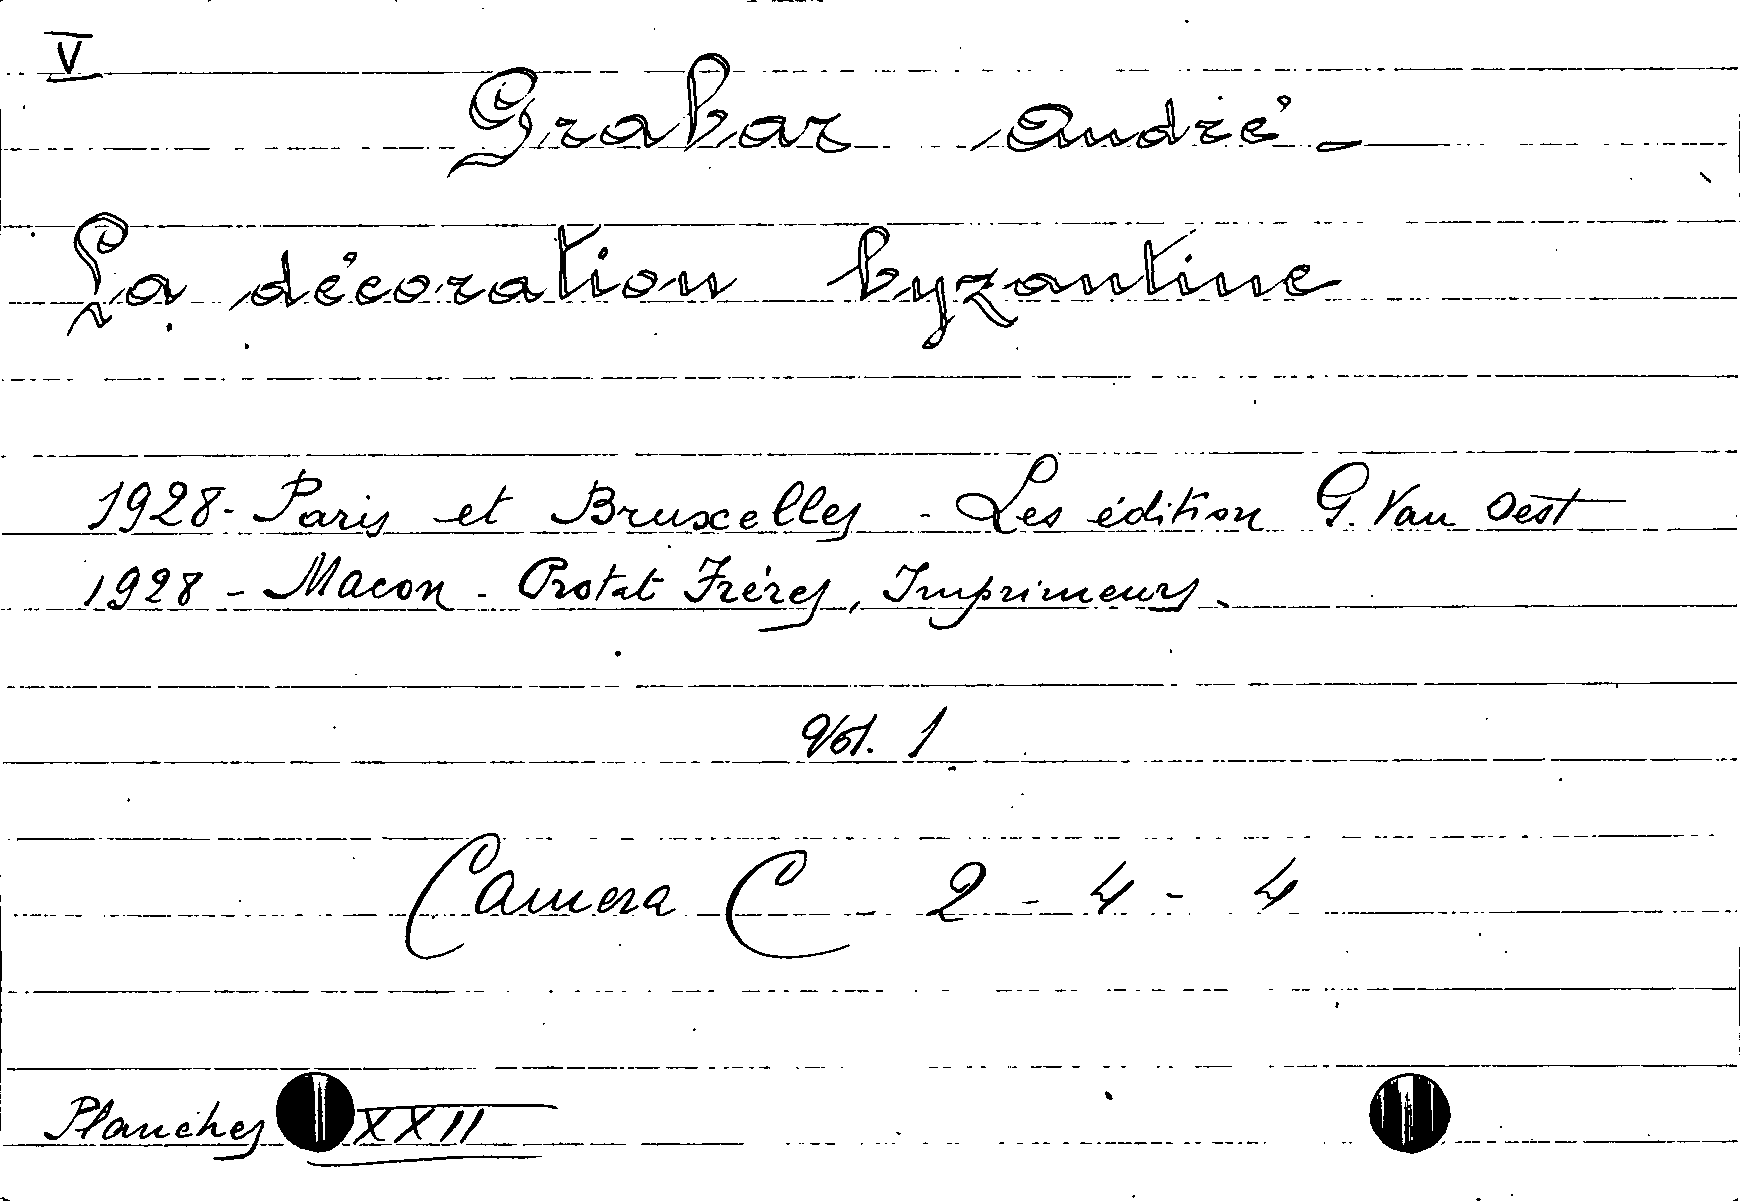 V
Grabar André -
La décoration byzantine
1928 - Paris et Bruxelles - Les édition G. Van Oest
1928 - Macon - Protat Frères, Imprimeurs.
Vol. 1
Camera C 2 - 4 - 4
Planches XXII